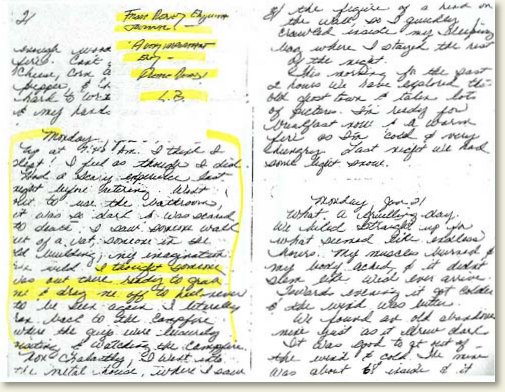 2/
From Benny
A very important
Day -
L.B.
enough wood
fire. Can't
Cheese, Corn
pepper, &
hard to write
& my hand
Monday
up at 7:45 A.M. I think I
slept! I feel as though I did.
Had a scary experience last
night before entering. Went
out to use the bathroom,
it was so dark I was scared
to death. I saw someone walk
out of a vat, someone in the
old building; my imagination
ran wild. I thought someone
was out there ready to grab
me & drag me off to hell never
to be seen again. I literally
ran back to the campfire
where the guys were leisurely
resting & watching the campfire.
Not Chalabatty, I went into
the metal house, where I saw
of the figure of a head on
the wall, so I quickly
crawled inside my sleeping
bag where I stayed the rest
of the night.
This morning for the past
2 hours we have explored the
old ghost town & taken lots
of pictures. I'm ready for
breakfast now & a warm
fire as I'm cold & very
hungry. Last night we had
some light snow.
Monday, Jan. 21
What a grueling day.
We hiked straight up for
what seemed like endless
hours. My muscles burned &
my body ached & it didn't
seem like we'd ever arrive.
Towards evening it got colder
& the wind was bitter.
We found an old abandoned
mine just as it drew dark.
It was good to get out of
the wind & cold. The mine
was about 68 inside & it